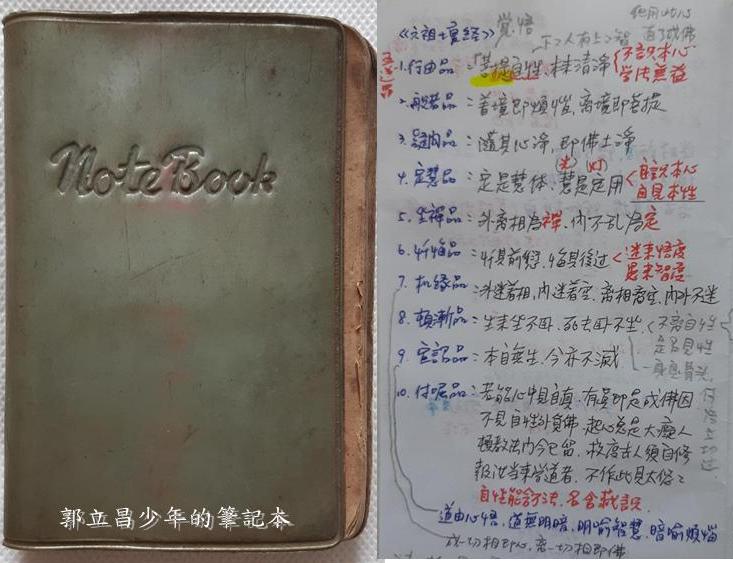 Note Book
郭立昌少年的筆記本
《六祖壇經》 覺悟
下下人有上上智
但用此心
直了成佛
1.行由品：「菩提自性，本來清淨
不識本心
学法無益
2.般若品：著境即煩惱，离境即菩提
3.疑問品：隨其心淨，即佛土淨
(光) (灯)
4.定慧品：定是慧体，慧是定用
自識本心
自見本性
5.坐禪品：外离相為禪，內不乱為定
6.懺悔品：懺其前愆，悔其後过
迷来悟度
愚来智度
7.机緣品：外迷著相，內迷著空，离相离空，內外不迷
8.頓漸品：生来坐不臥，死去臥不坐
不离自性
是名見性
一具臭骨头
何為立功过
9.宣詔品：本自無生，今亦不滅
10.付囑品：若能心中見自真，有真即是成佛因
不見自性外覓佛，起心总是大癡人
頓教法門今已留，救度世人須自修
報汝当来学道者，不作此見太悠悠
自性能含万法，名含藏識
道由心悟，道無明暗，明喻智慧，暗喻煩惱
成一切相即心，离一切相即佛